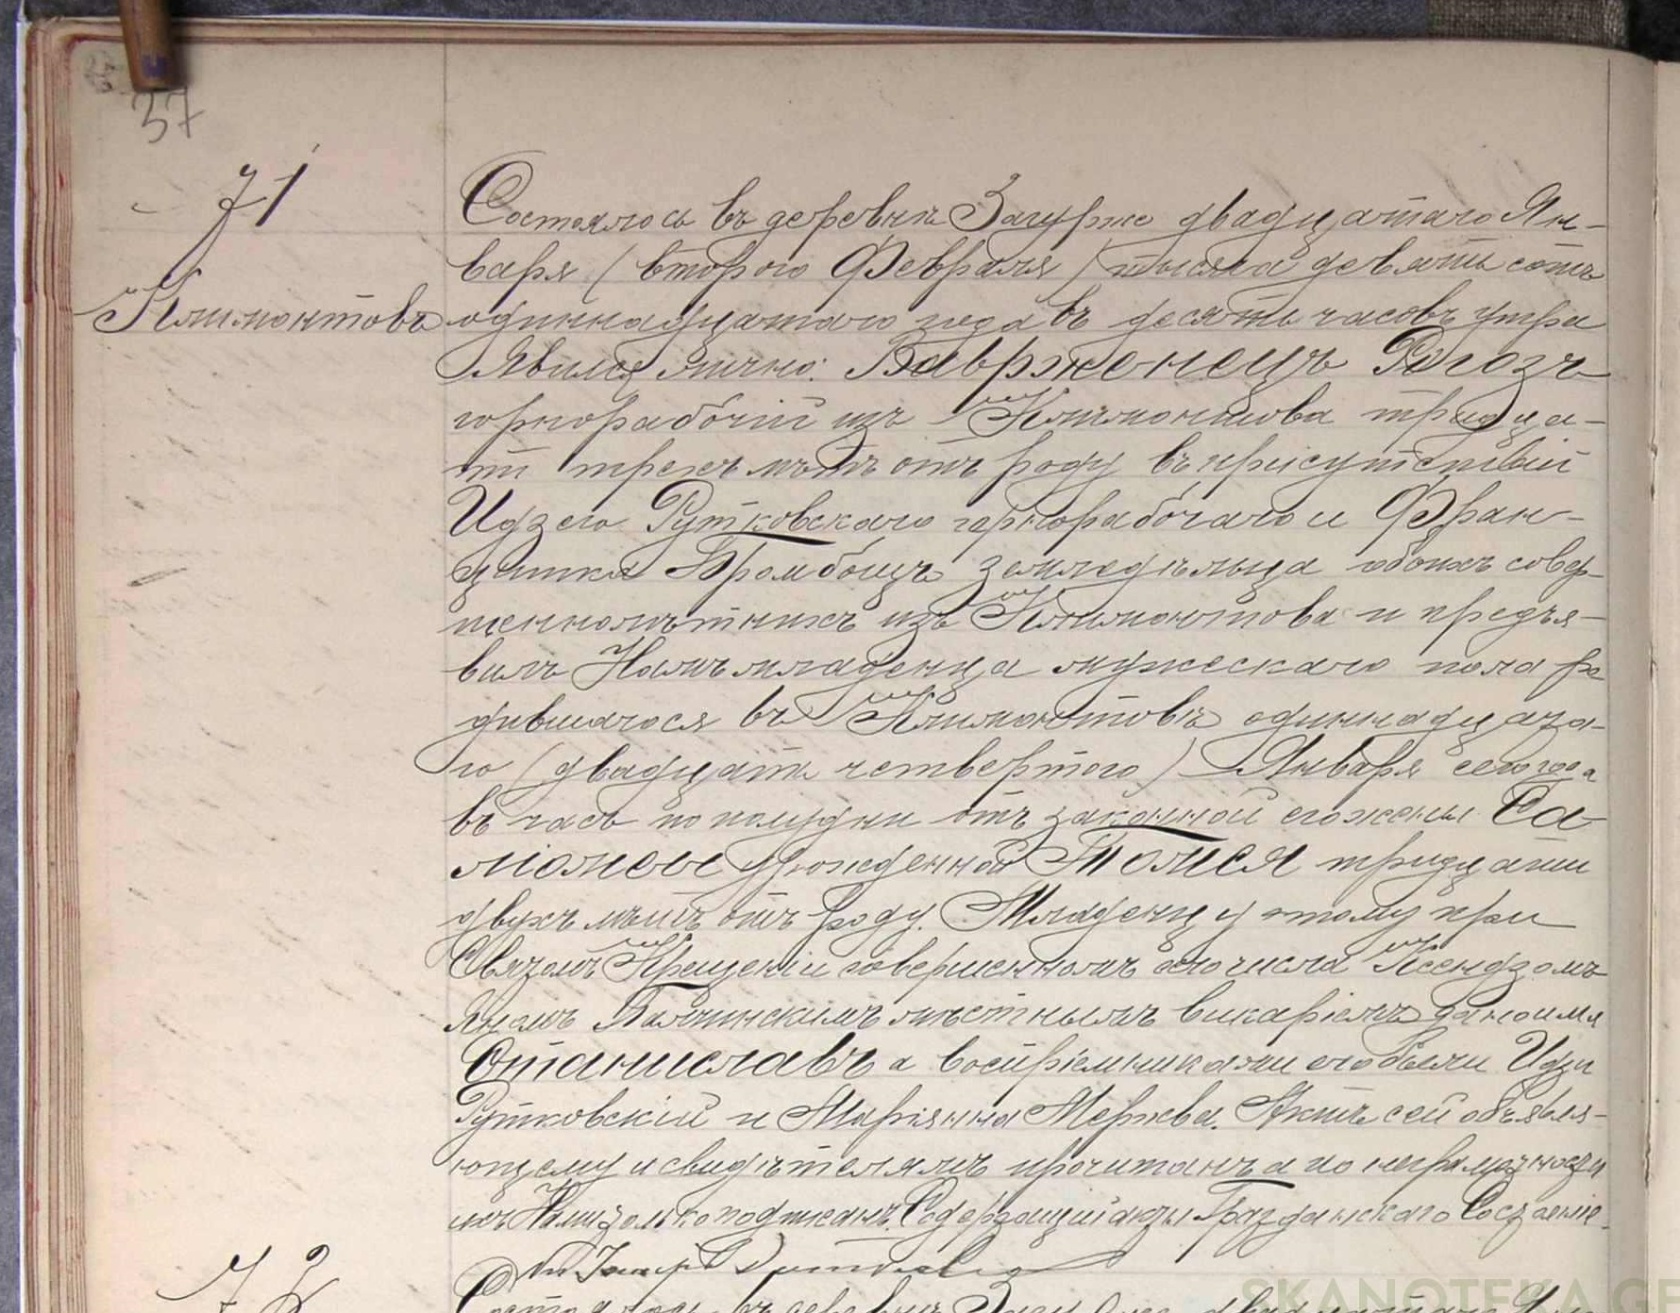 37
71
Климонтовъ
Состоялось въ деревнѣ Загурже двадцатаго Ян-
варя (второго Февраля) тысяча девятьсотъ
одиннадцатаго года въ десять часовъ утра
Явился лично: Ваврженецъ Рогозъ
горнорабочій изъ Климонтова тридца-
ти трехъ лѣтъ отъ роду въ присутствіи
Идзего Рутковскаго горнорабочаго и Фран-
цишка земледѣльца обоихъ совер-
шеннолѣтнихъ изъ Климонтова и предъя-
вилъ Намъ младенца мужескаго пола ро
дившагося въ Климонтовѣ одиннадцата-
го (двадцать четвертого) Января сего года
въ часъ по полудни отъ законной его жены Са
ломеи урожденной тридцати
двухъ лѣтъ отъ роду. Младенцу этому при
Святомъ Крещеніи совершенномъ сего числа Ксендзомъ
Яномъ мѣстнымъ викаріемъ дано имя
Станиславъ а воспріемниками его были Идзи
Рутковскій и Маріанна Актъ сей объявля-
ющему и свидѣтелямъ прочитанъ а по неграмотности
ихъ Нами только подписанъ. Содержащій акты Гражданскаго Состоянія
72
Состоялось въ деревнѣ
SKANOTEKA.GE